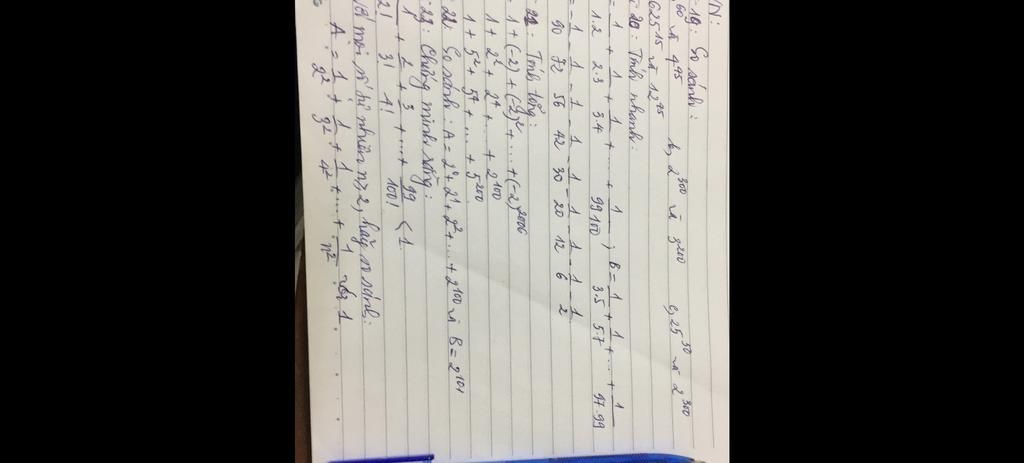 VN:
19: So sánh:
60 và 4²⁵ b, 2³⁰⁰ và 3²⁰⁰ c, 25⁵⁰ và 2³⁰⁰
625¹⁵ và 12⁴⁵
20: Tính nhanh:
= 1/1.2 + 1/2.3 + 1/3.4 + ... + 1/99.100 ; B = 1/3.5 + 1/5.7 + ... + 1/97.99
= -1/90 - 1/72 - 1/56 - 1/42 - 1/30 - 1/20 - 1/12 - 1/6 - 1/2
21: Tính tổng:
1 + (-2) + (-2)² + ... + (-2)²⁰⁰⁶
1 + 2² + 2⁴ + ... + 2¹⁰⁰
1 + 5² + 5⁴ + ... + 5²⁰⁰
22: So sánh: A = 2⁰ + 2¹ + 2² + ... + 2¹⁰⁰ và B = 2¹⁰¹
23: Chứng minh rằng:
1/2! + 2/3! + 3/4! + ... + 99/100! < 1
Với mỗi số tự nhiên n ≥ 2, hãy so sánh:
A = 1/2² + 1/3² + 1/4² + ... + 1/n² với 1